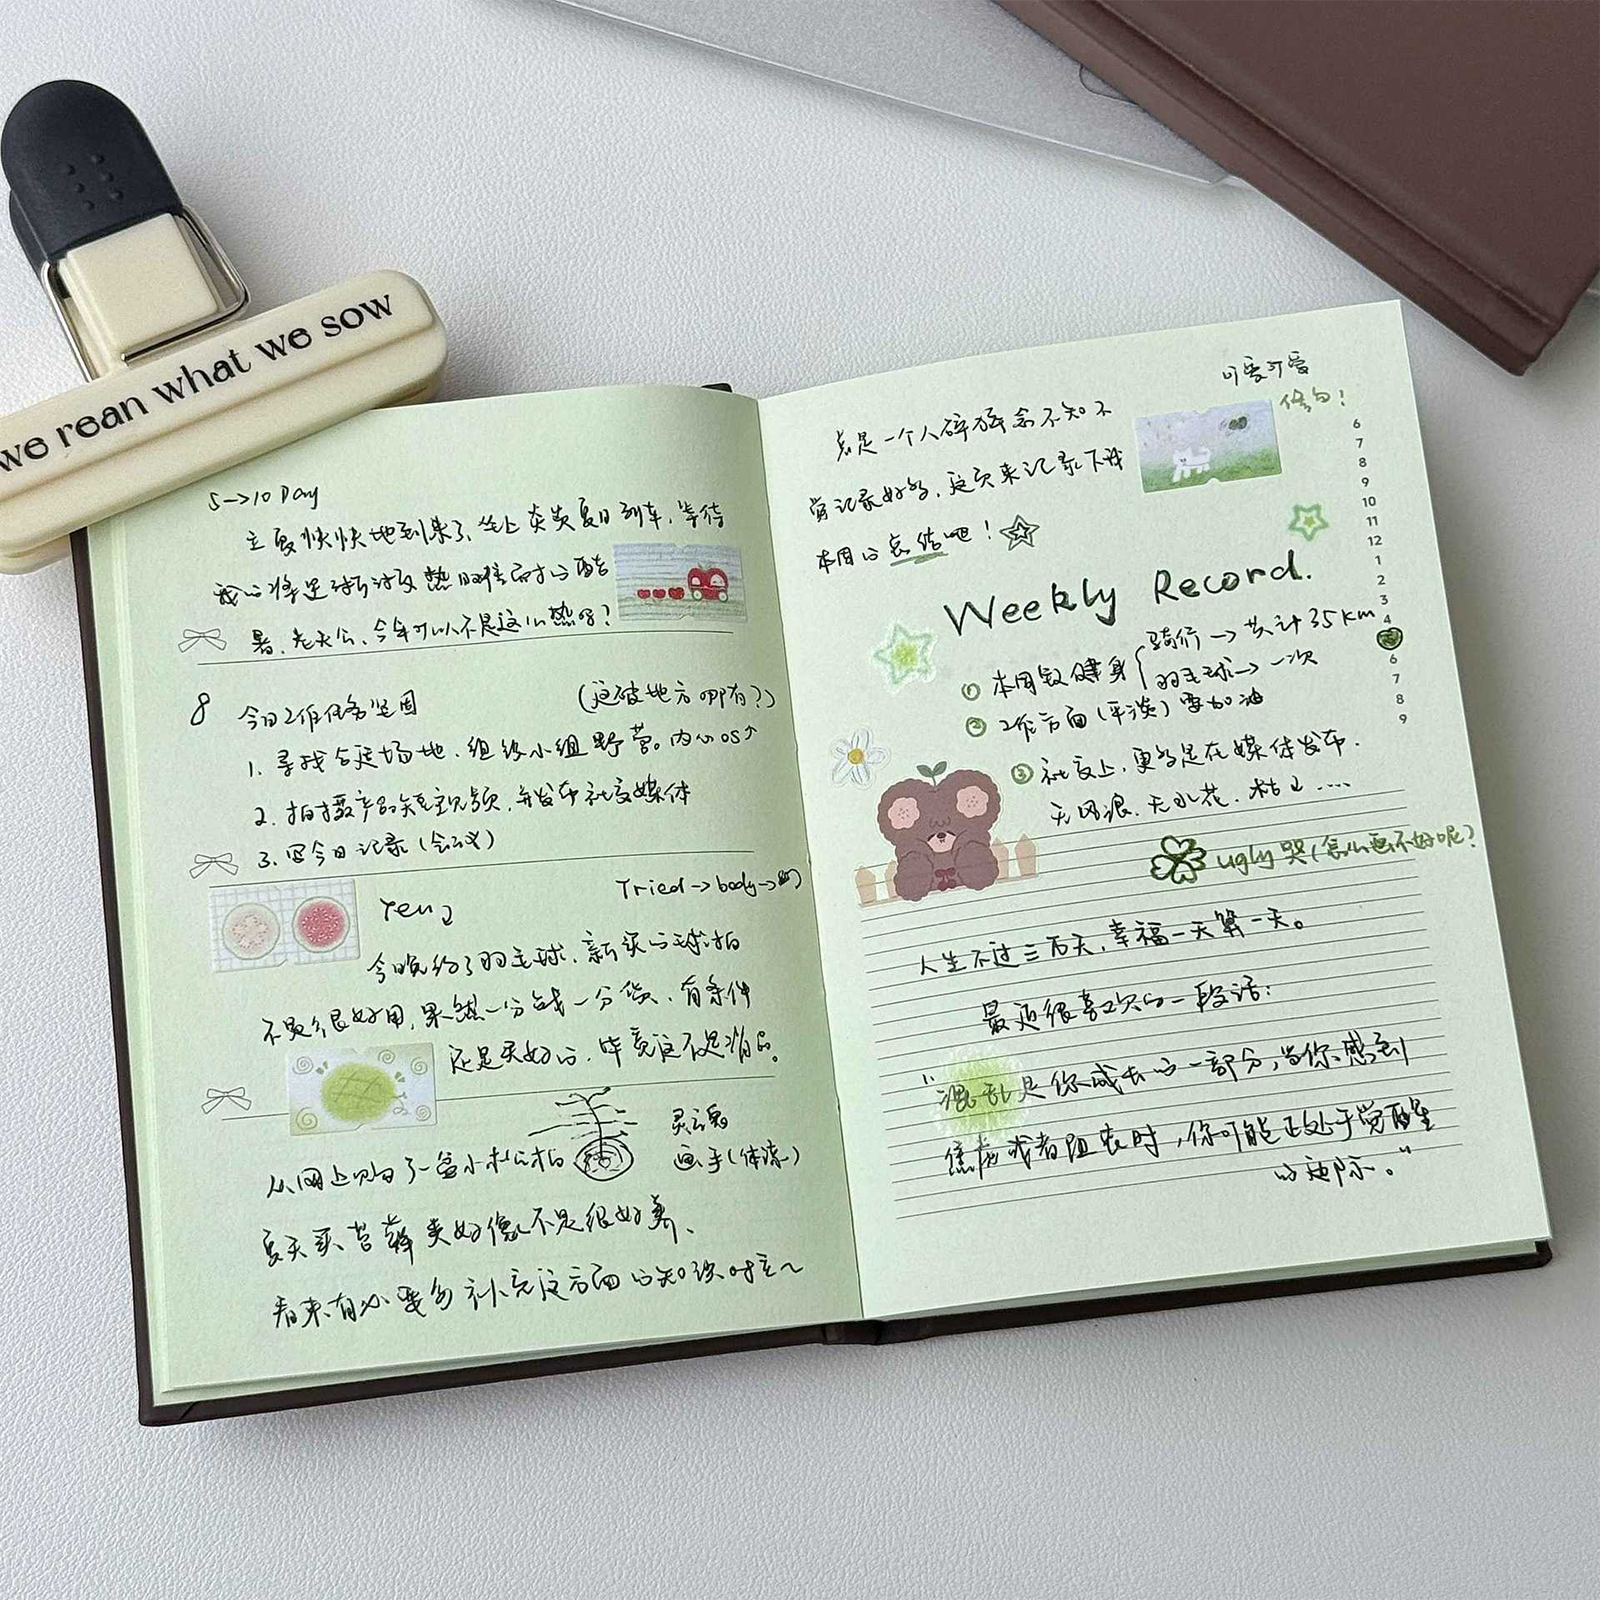 we rean what we sow
5→10 Day
立夏快快地到来了,坐上炎炎夏日列车,等待
我的将是 热 而 的酷
暑,老天公,今年可以不是这么热吗?
8 今日工作任务坚固 (这破地方哪有?)
1. 寻找合适场地、组织小组野营。内心OS↑
2. 拍摄产品短视频,并发布社交媒体
3. 写今日记录(会议)
Tried→body→
今晚约了羽毛球,新买的球拍
不是很好用,果然一分钱一分货,有条件
还是买好的,毕竟这不是消品。
从网上购了一盆小松柏
灵魂
画手(体谅)
夏天买苔藓类好像不是很好养、
看来有必要多补充这方面的知识对立~
可爱可爱
修勾!
总是一个人碎碎念不知不
觉记录好多,这页来记录下我
本周的总结吧!
Weekly Record.
① 本周数健身 骑行→共计35km
羽毛球→一次
② 工作方面(平淡)要加油
③ 社交上,更多是在媒体发布.
无风浪,无水花,枯 ....
ugly 哭(怎么画不好呢?
人生不过三万天,幸福一天算一天。
最近很喜欢的一段话:
"混乱是你成长的一部分,当你感到
焦虑或者沮丧时,你可能正处于觉醒
的边际。"
6
7
8
9
10
11
12
1
2
3
4
6
7
8
9